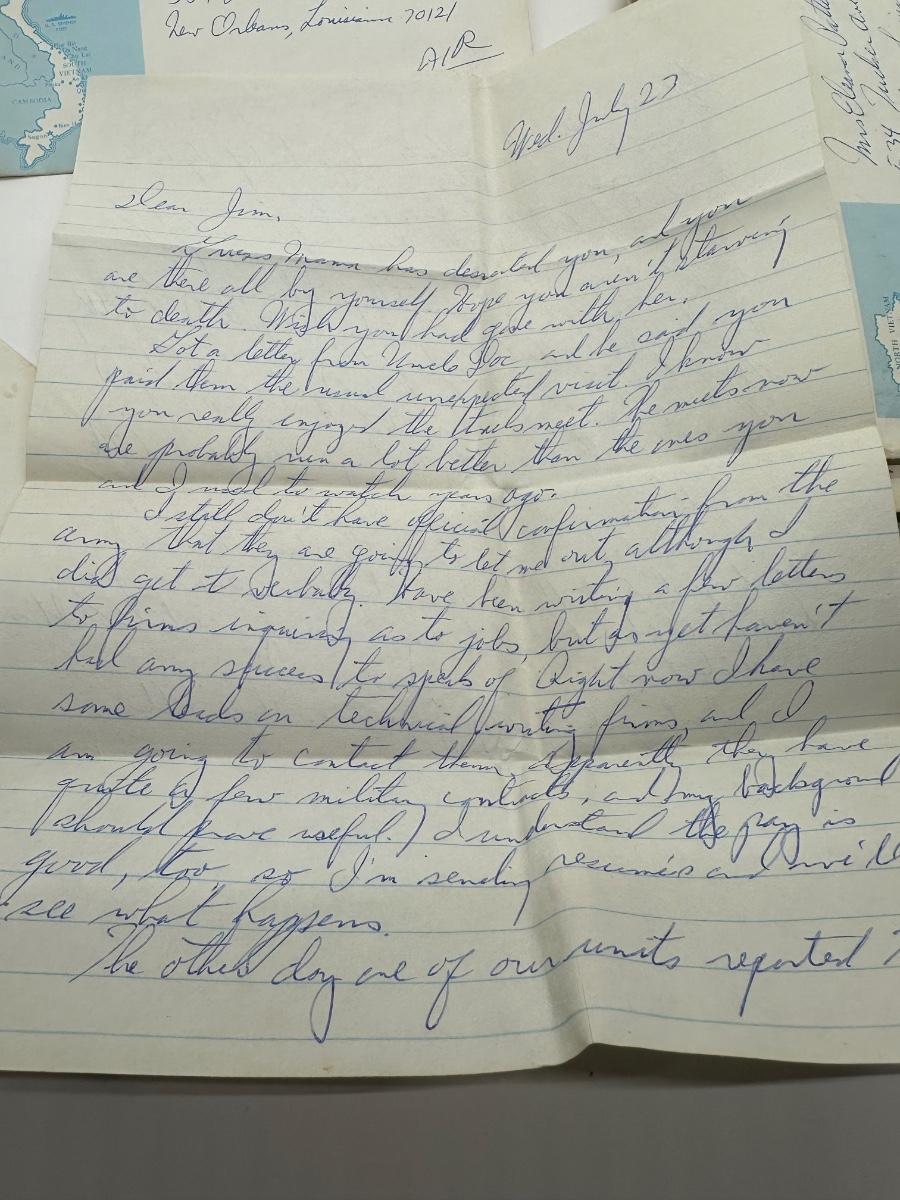 New Orleans, Louisiana 70121
AIR
U.S. 
SOUTH
VIETNAM
CAMBODIA
Saigon
Mrs Eleanor
NORTH VIET
Wed. July 23
Dear Jim,
Guess Mama has deserted you, and you
are there all by yourself. Hope you aren't starving
to death. Wish you had gone with her.
Got a letter from Uncle Doc and he said you
paid them the usual unexpected visit. I know
you really enjoyed the track meet. The meets now
are probably run a lot better than the ones you
and I used to watch years ago.
I still don't have official confirmation from the
army that they are going to let me out, although I
did get it verbally. Have been writing a few letters
to firms inquiring as to jobs, but as yet haven't
had any success to speak of. Right now I have
some leads on technical writing firms, and I
am going to contact them. Apparently they have
quite a few military contracts, and my background
should prove useful. I understand the pay is
good, too, so I'm sending resumés and we'll
see what happens.
The other day one of our units reported